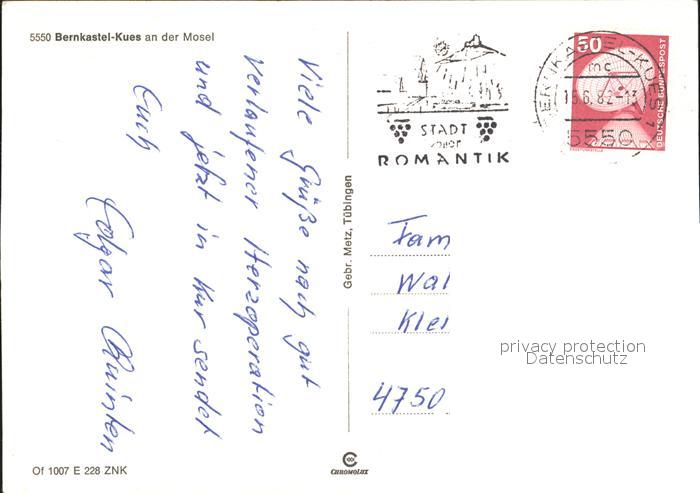 5550 Bernkastel-Kues an der Mosel
Viele Grüße nach gut
verlaufener Herzoperation
und jetzt in Kur sendet
Euch
Edgar Quinten
Of 1007 E 228 ZNK
Gebr. Metz, Tübingen
CHROMOLUX
STADT
voller
ROMANTIK
BERNKASTEL-KUES 1
mc
5550
50
DEUTSCHE BUNDESPOST
Fam
Wal
Klei
4750
privacy protection
Datenschutz